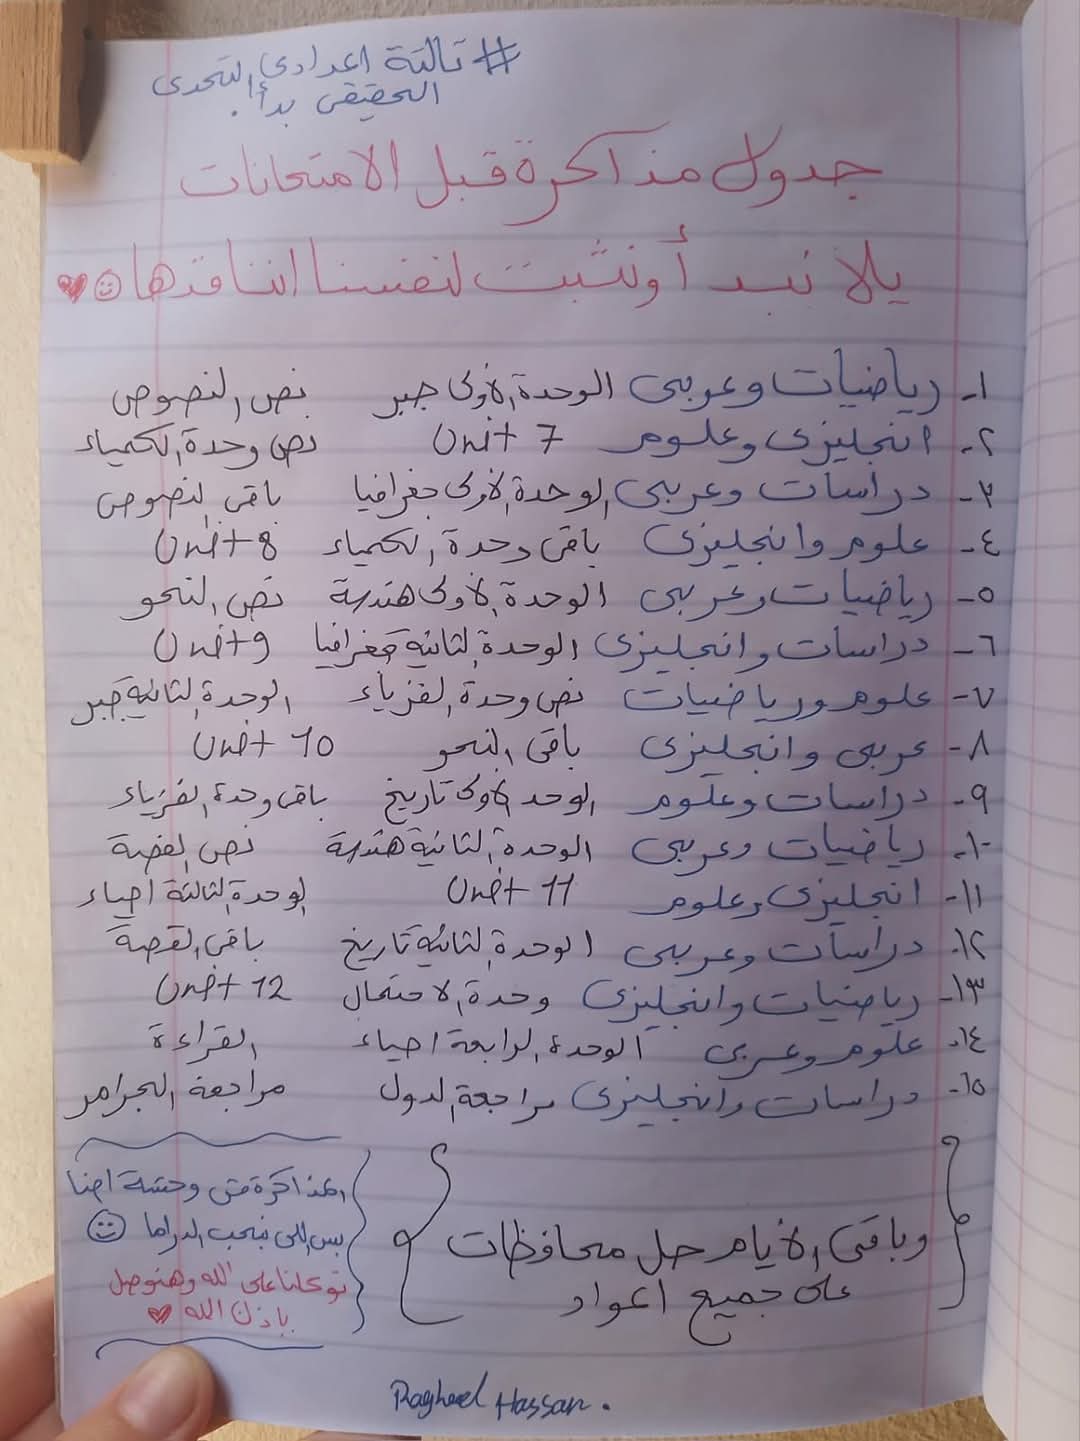 # تالتة اعدادي التحدى
الحقيقى بدأ.
جدول مذاكرة قبل الامتحانات
يلا نبدأ ونثبت لنفسنا اننا قدها ☺♥
١- رياضيات وعربى الوحدة الأولى جبر نص النصوص
٢- انجليزى وعلوم Unit 7 نص وحدة الكمياء
٣- دراسات وعربى الوحدة الأولى جغرافيا باقى النصوص
٤- علوم وانجليزى باقى وحدة الكمياء Unit 8
٥- رياضيات وعربى الوحدة الأولى هندسة نص النحو
٦- دراسات وانجليزى الوحدة الثانية جغرافيا Unit 9
٧- علوم ورياضيات نص وحدة الفزياء الوحدة الثانية جبر
٨- عربى وانجليزى باقى النحو Unit 10
٩- دراسات وعلوم الوحدة الأولى تاريخ باقى وحدة الفزياء
١٠- رياضيات وعربى الوحدة الثانية هندسة نص القصة
١١- انجليزى وعلوم Unit 11 الوحدة الثالثة احياء
١٢- دراسات وعربى الوحدة الثانية تاريخ باقى القصة
١٣- رياضيات وانجليزى وحدة الاحتمال Unit 12
١٤- علوم وعربى الوحدة الرابعة احياء القراءة
١٥- دراسات وانجليزى مراجعة الدول مراجعة الجرامر
وباقى الأيام حل محافظات
على جميع المواد
المذاكرة مش وحشة احنا
بس اللى بنحب الدراما ☺
توكلنا على الله وهنوصل
بإذن الله ♥
Hassan.